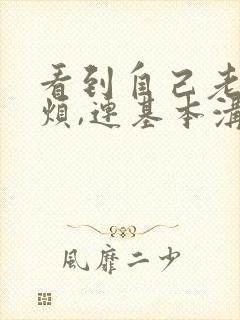 看到自己老
煩,連基本溝
風靡二少